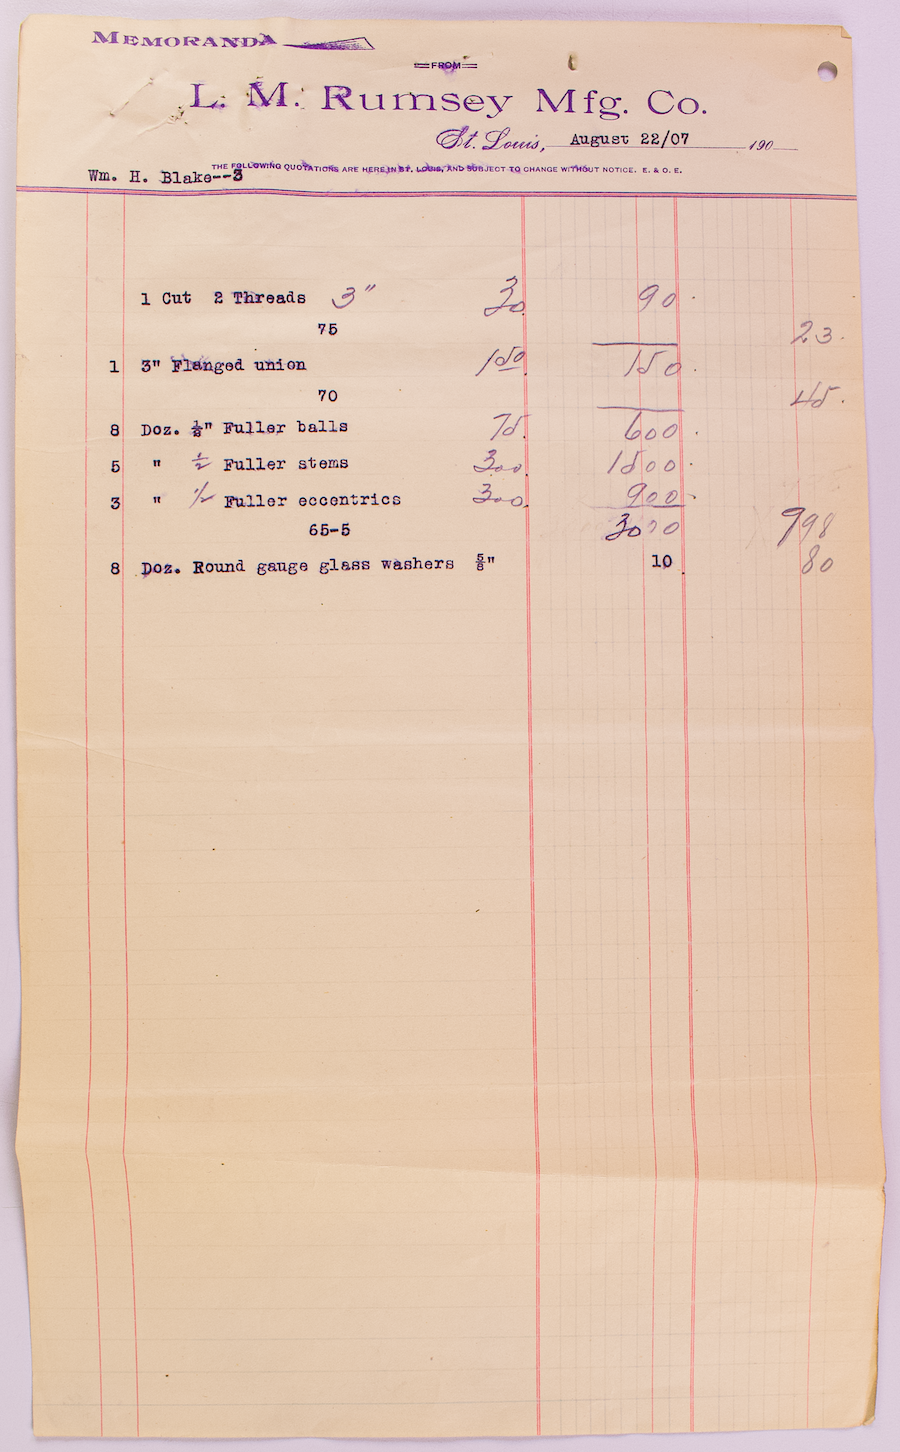 MEMORANDA
FROM
L. M. Rumsey Mfg. Co.
St. Louis, August 22/07 190
THE FOLLOWING QUOTATIONS ARE HERE IN ST. LOUIS, AND SUBJECT TO CHANGE WITHOUT NOTICE. E. & O. E.
Wm. H. Blake--3
1 Cut 2 Threads 3" 30 90
75 23
1 3" Flanged union 150 150
70 45
8 Doz. ⅜" Fuller balls 75 600
5 " ½ Fuller stems 300 1500
3 " ½ Fuller eccentrics 300 900
65-5 3000 998
8 Doz. Round gauge glass washers ⅝" 10 80